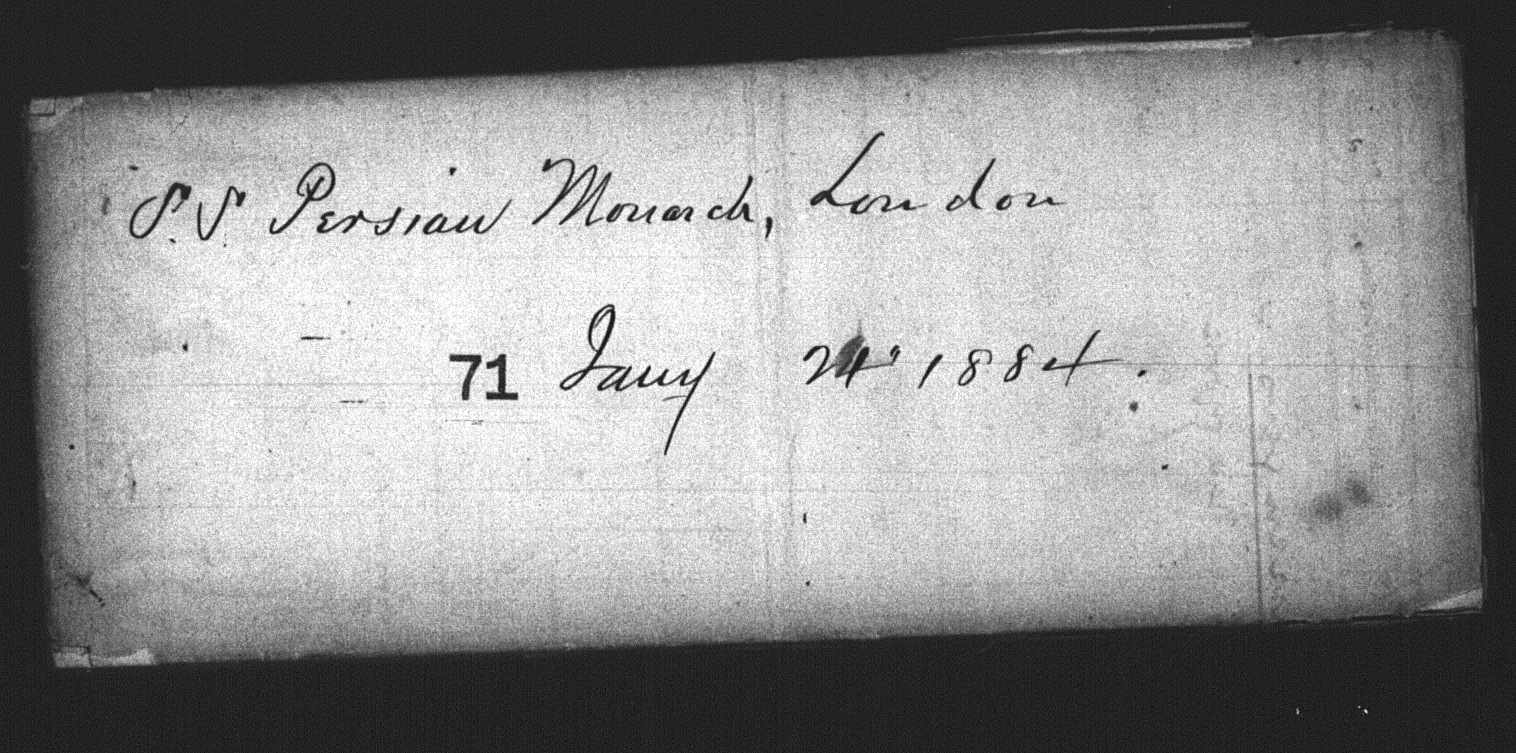 S.S. Persian Monarch, London
71 Jany 24" 1884.